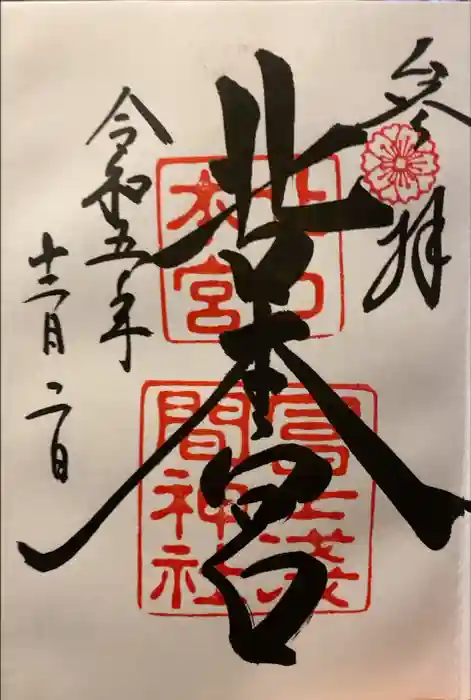 参拝
北口本宮
北口
本宮
冨士浅
間神社
令和五年
十二月二日